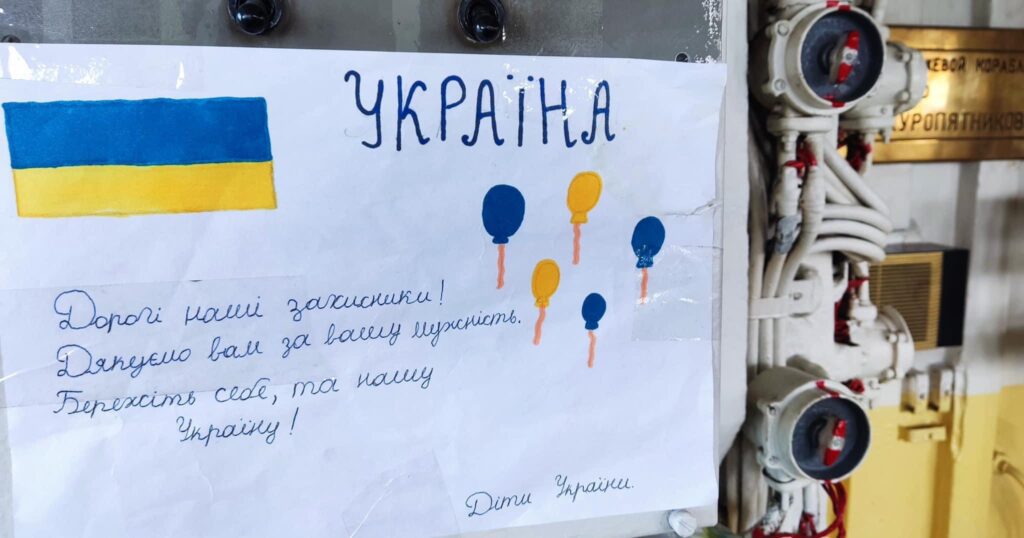 УКРАЇНА
Дорогі наші захисники!
Дякуємо вам за вашу мужність.
Бережіть себе, та нашу
Україну!
Діти України.
КУРОПЯТНИКОВ